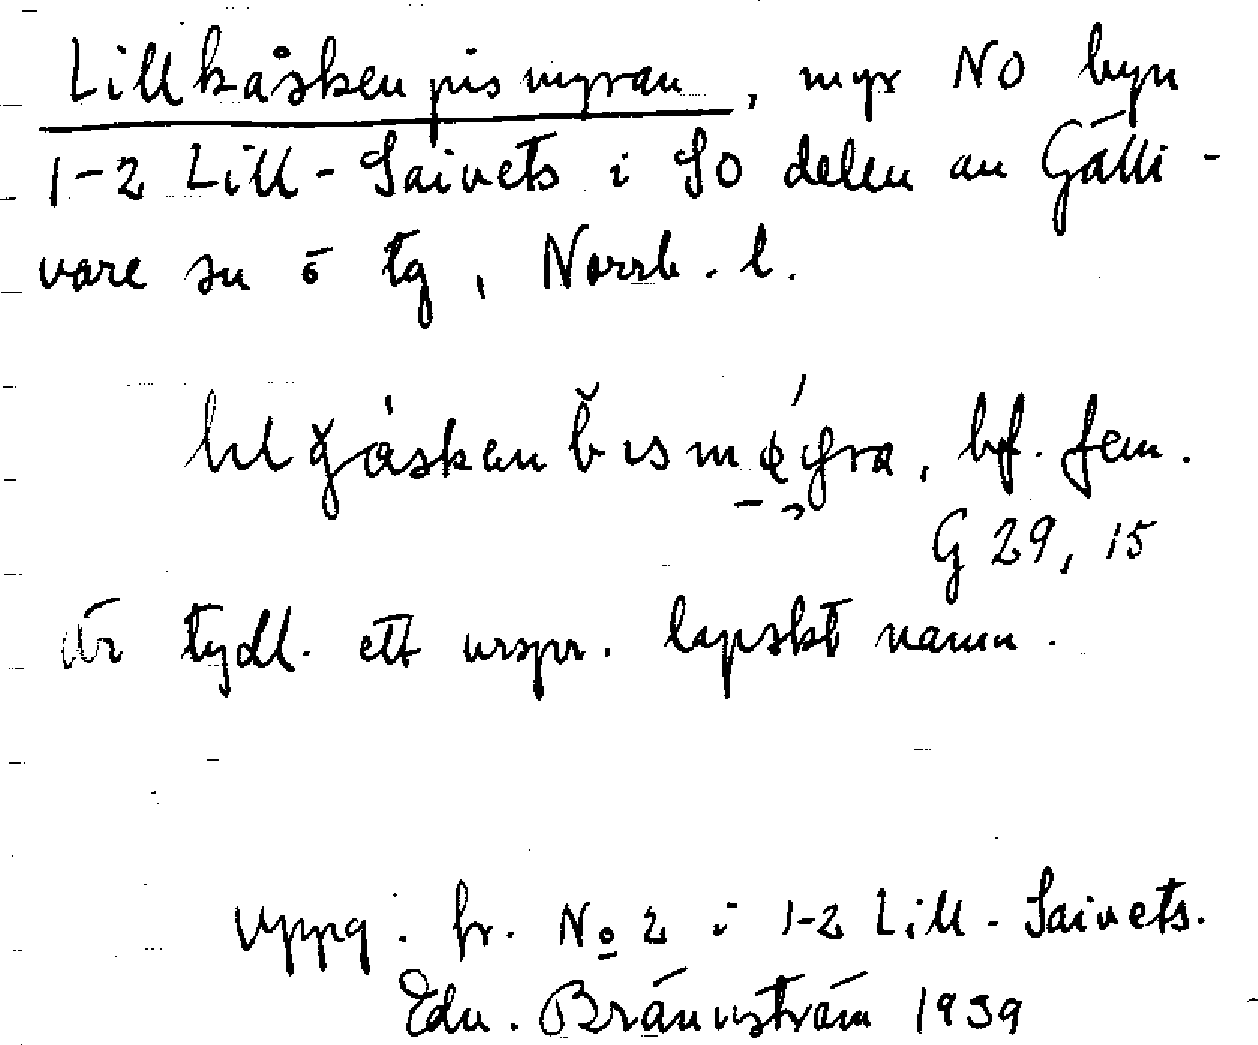 Lillkåskenpismyran, myr NO byn
1-2 Lill-Saivets i SO delen av Gälli-
vare sn o tg, Norrb. l.
bf. fem.
G 29, 15
är tydl. ett urspr. lapskt namn.
Uppg. fr. No 2 i 1-2 Lill-Saivets.
Edv. Brännström 1939